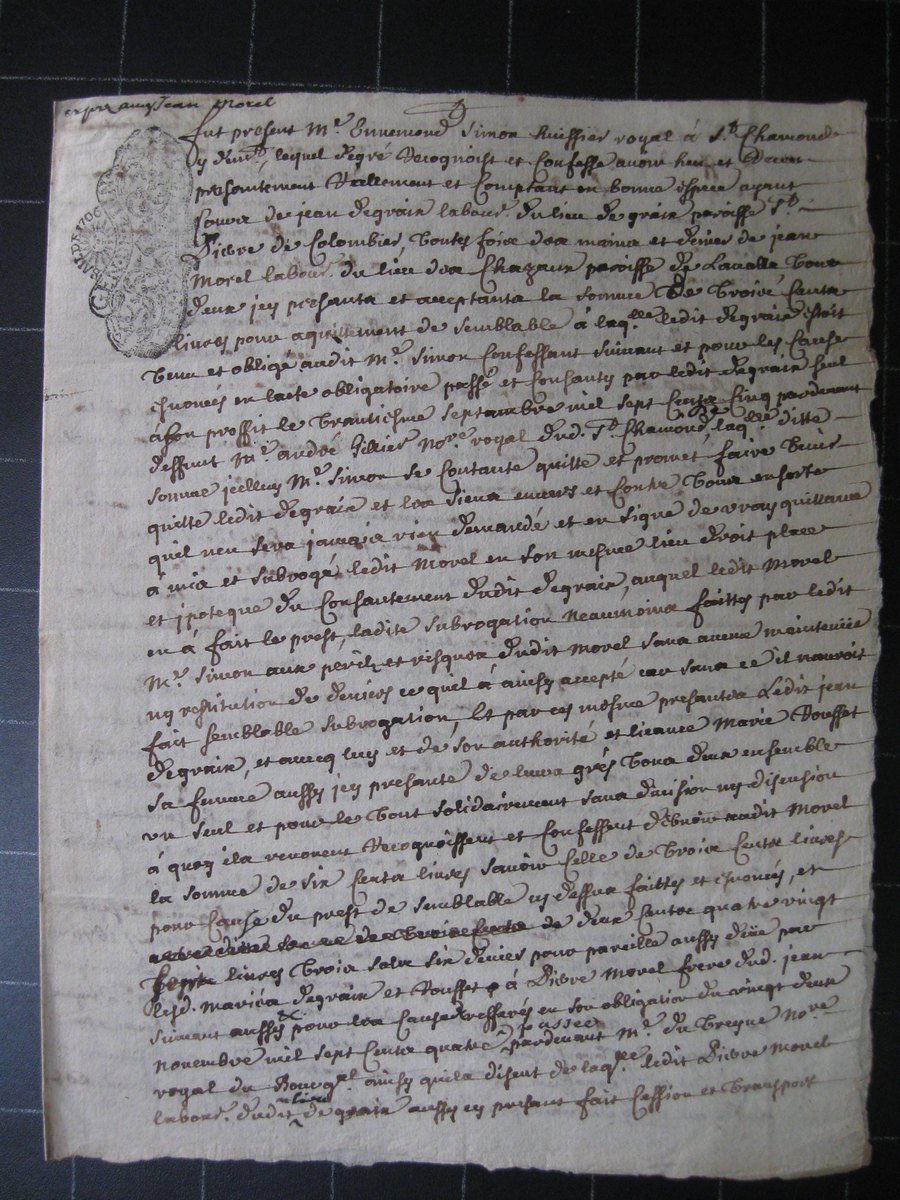 expir amy Jean Morel
GEN DE LYON
fut present Mr. Ennemond Simon huissier royal à St. Chamond
y dmt. lequel degré Recognoist et Confesse avoir heu et Receu
presantement Reallement et Comptant en bonne espece ayant
Cours de jean degrain labour. du lieu de grain paroisse St.
Pierre de Colombier, toutes fois des mains et deniers de jean
Morel labour. du lieu des Chazaux paroisse de Lavalla tous
deux jcy presants et acceptants la somme de trois Cents
livres pour aquittement de semblable à laqlle. ledit degrain estoit
tenu et obligé audit Mr. Simon Confessant suivant et pour les Cause
enoncés en lacte obligatoire passé et Consanty par ledit degrain seul
à son proffit le trantiesme septambre mil sept Cents Cinq pardevant
deffunt Mr. andré gillier Nore. royal dud. St. Chamond, laqlle ditte
somme jcelluy Mr. Simon se Contante quitte et promet faire tenir
quitte ledit degrain et les siens envers et Contre tous ensorte
quil neu sera jamais rien demandé et en signe de vray quittance
à mis et subrogé ledit Morel en son mesme lieu droit place
et jpoteque du Consantement dudit degrain, auquel ledit Morel
en à fait le prest, ladite subrogation neaumoins faittes par ledit
Mr. Simon aux perilz et risques dudit Morel sans aucune maintenüe
ny restitution de deniers ce quil à ainsy accepté car sans ce il nauroit
fait semblable subrogation, Et par ces mesme presantes Ledit jean
degrain, et avecq luy et de son authorité et licance Marie Rousset
sa femme aussy jcy presante de leurs grés tous deux ensemble
un seul et pour le tout solidairement sans division ny discusion
à quoy ils renoncent Recognoissent et Confessent debvoir audit Morel
la somme de six Cents livres savoir Celle de trois Cents livres
pour Cause du prest de semblable cy dessus faittes et enoncés, et
autre ditte somme de trois Cents de deux Cents quatre vingt
livres trois solz six deniers pour pareille aussy deüe par
lesd. mariés degrain et Rousset à Pierre Morel frere dud. jean
suivant aussy et pour les Cause refferés en son obligation du vingt deux
novembre mil sept Cents quatre passée pardevant Mr. du treyne Nore.
royal du Bourcgal. ainsy quils disent de laqlle. ledit Pierre Morel
labour. dudit lieu de grain aussy cy presant fait Cession et transport